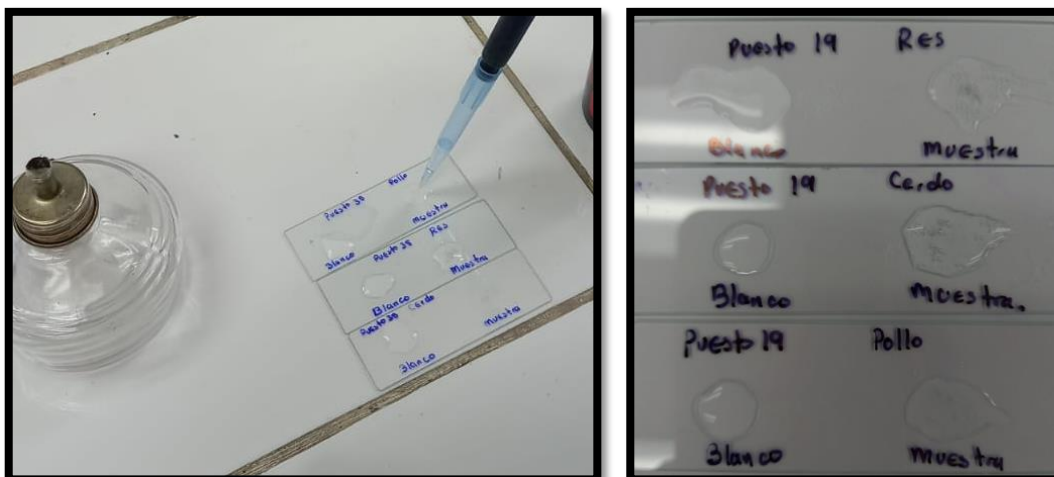 Puesto 38 Pollo
Blanco muestra
Puesto 38 Res
Blanco Muestra
Puesto 38 Cerdo
Blanco muestra
Puesto 19 Res
Blanco muestra
Puesto 19 Cerdo
Blanco muestra.
Puesto 19 Pollo
Blanco muestra